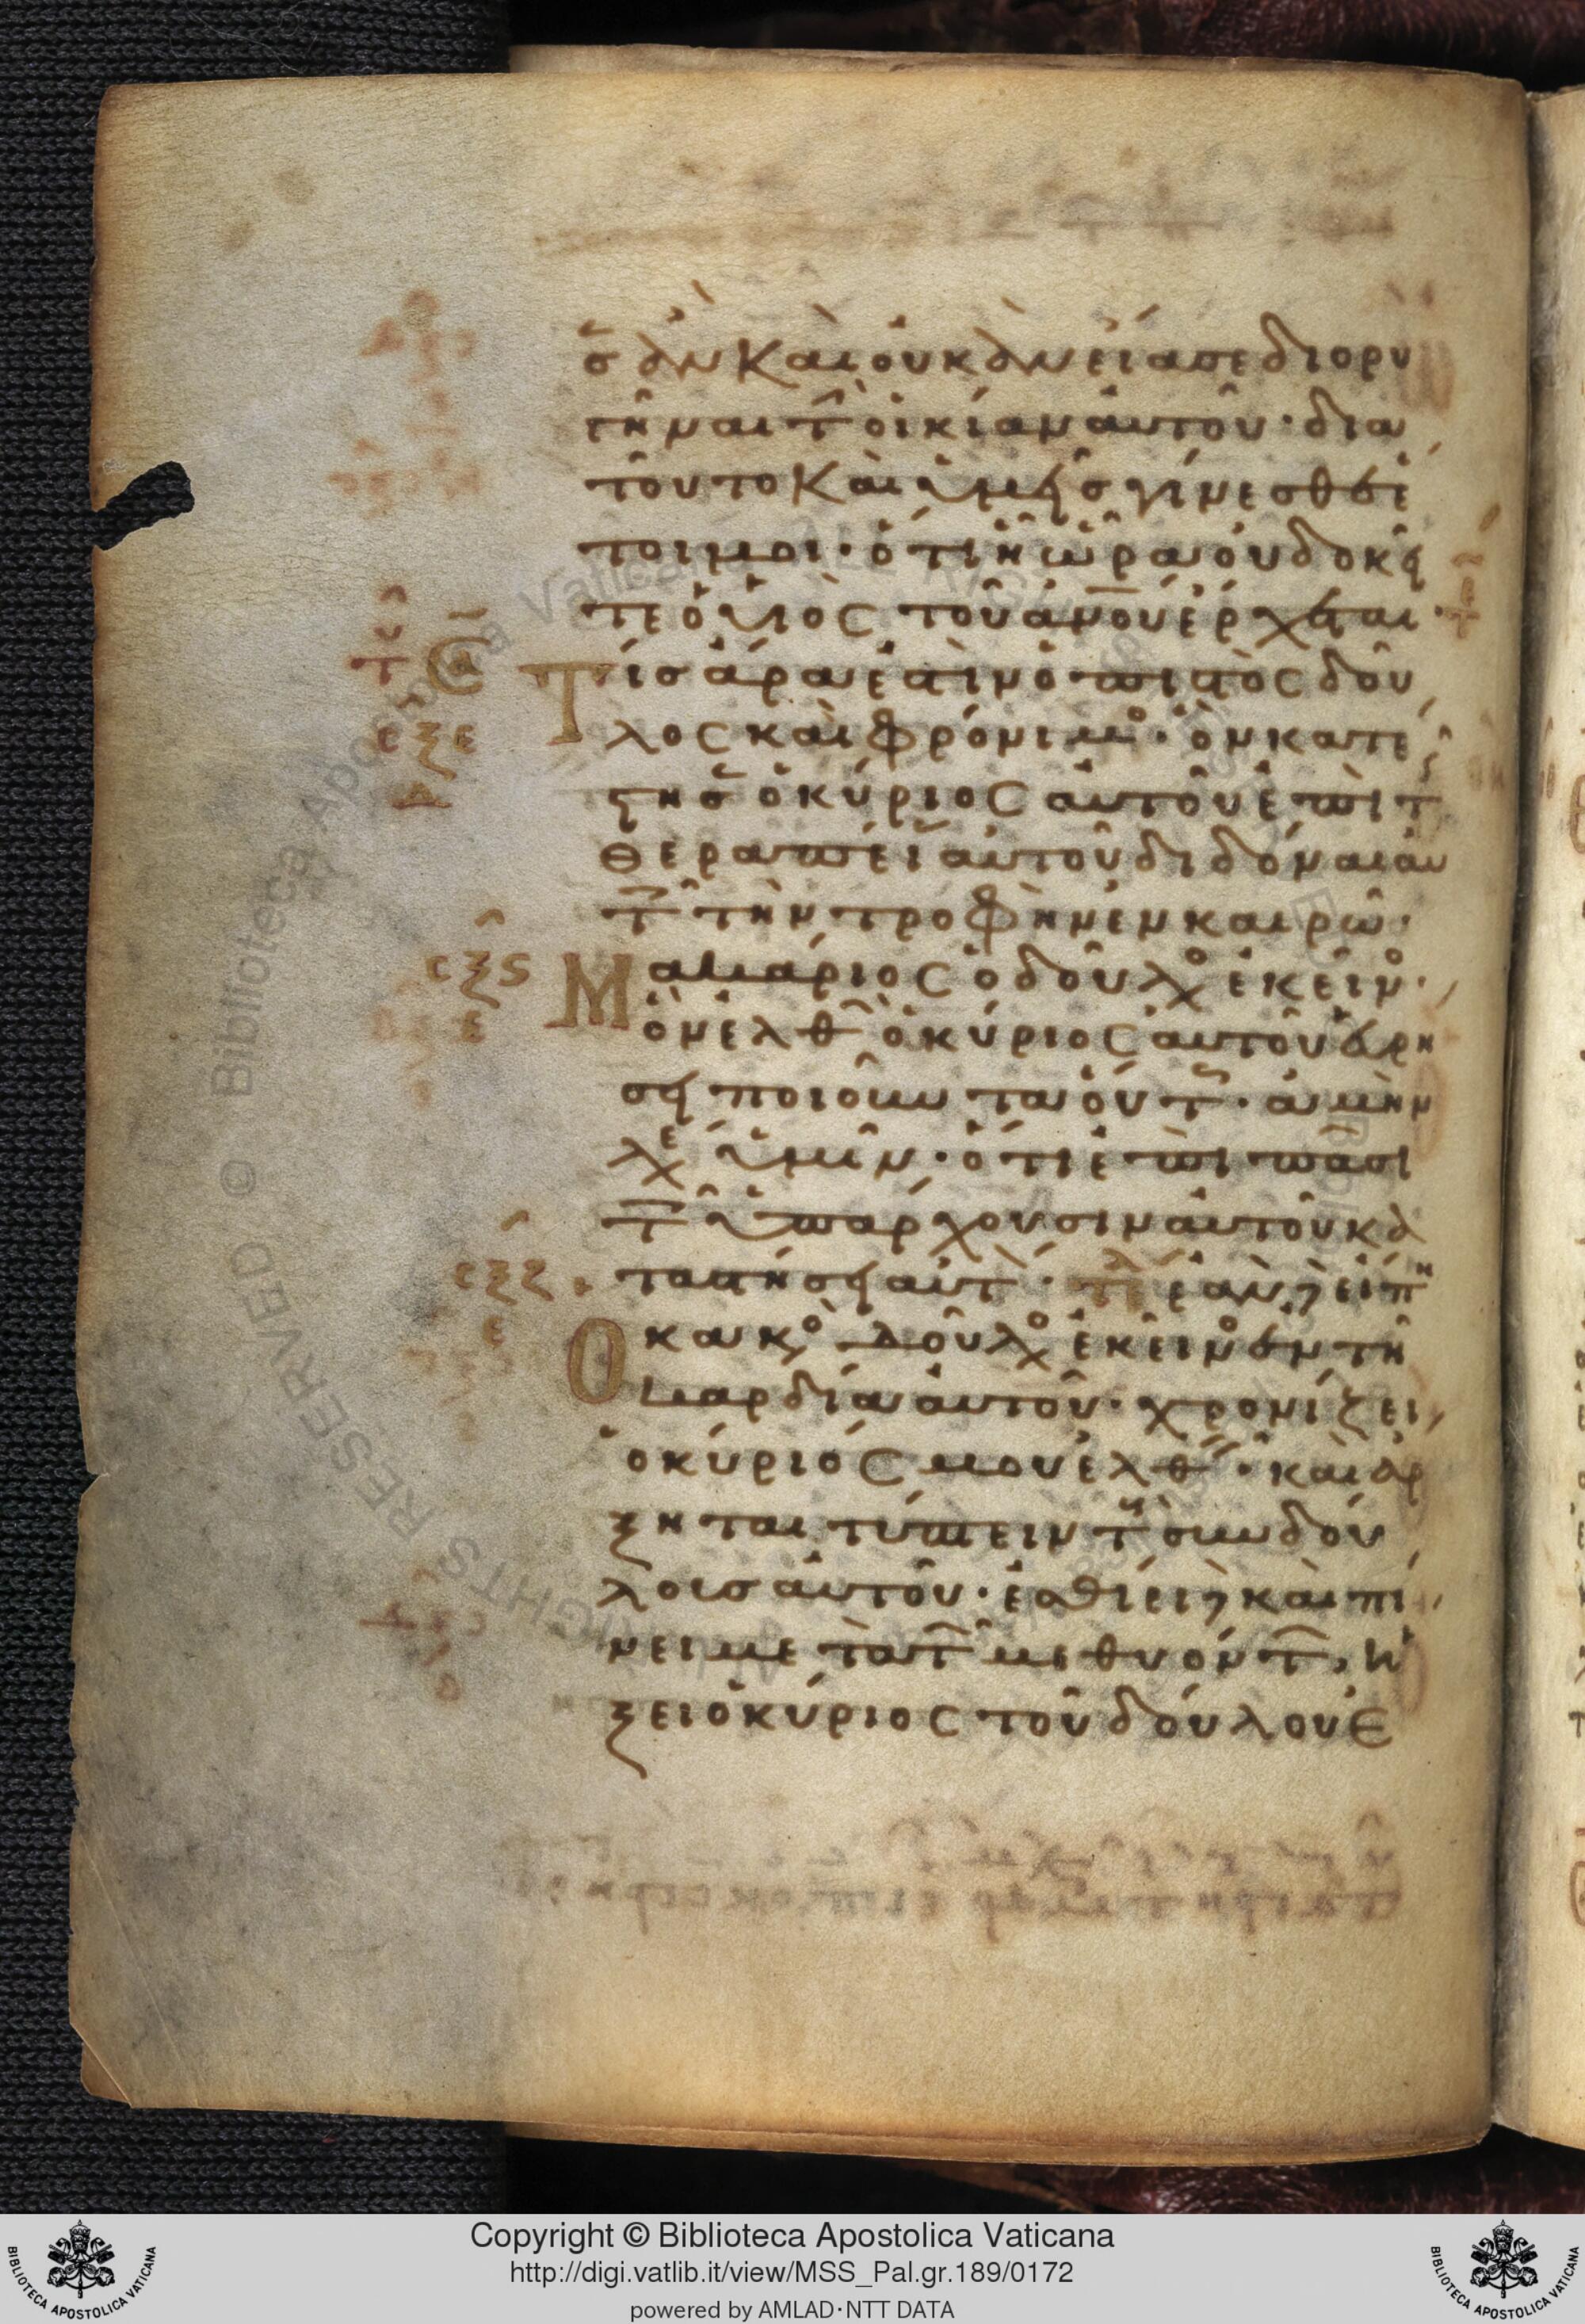 σεν ἂν καὶ οὐκ ἂν εἴασε διορυ
γῆναι τὴν οἰκίαν αὐτοῦ· δια
τοῦτο καὶ ὑμεῖς γίνεσθε ἕ
τοιμοι· ὅτι ᾗ ὥρα οὐ δοκεῖ
τε ὁ υἱὸς τοῦ ἀνου ἔρχεται·
Τίς ἄρα ἐστὶν ὁ πιστὸς δοῦ
λος καὶ φρόνιμος· ὃν κατέ
στησεν ὁ κύριος αὐτοῦ ἐπὶ τῆς
θεραπείας αὐτοῦ διδόναι αὐ
τοῖς τὴν τροφὴν ἐν καιρῷ·
σξς Μακάριος ὁ δοῦλος ἐκεῖνος·
ε ὃν ἐλθὼν ὁ κύριος αὐτοῦ εὑρή
σει ποιοῦντα οὕτως· ἀμὴν
λέγω ὑμῖν· ὅτι ἐπὶ πᾶσι
τοῖς ὑπάρχουσιν αὐτοῦ κα
σξζ ταστήσει αὐτόν· τλ ἐὰν δὲ εἴπῃ
ε Ὁ κακὸς δοῦλος ἐκεῖνος ἐν τῇ
καρδίᾳ αὐτοῦ· χρονίζει
ὁ κύριός μου ἐλθεῖν· καὶ ἄρ
ξηται τύπτειν τοὺς συνδού
λους αὐτοῦ· ἐσθίει δὲ καὶ πί
νει μετὰ τῶν μεθυόντων, ἥ
ξει ὁ κύριος τοῦ δούλου ἐ
Copyright © Biblioteca Apostolica Vaticana
http://digi.vatlib.it/view/MSS_Pal.gr.189/0172
powered by AMLAD·NTT DATA
BIBLIOTECA APOSTOLICA VATICANA
BIBLIOTECA APOSTOLICA VATICANA